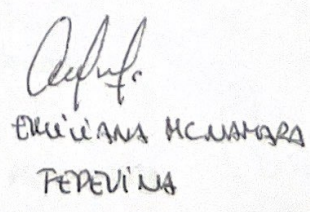 EMILIANA MCNAMARA
FEDEVINA